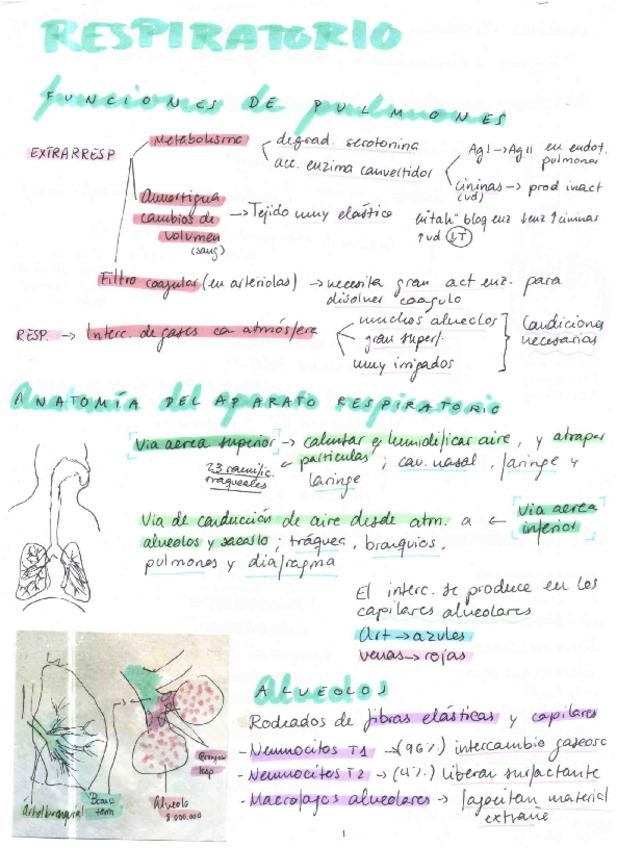 RESPIRATORIO
FUNCIONES DE PULMONES
EXTRARRESP
Metabolismo
degrad. serotonina
acc. enzima canvertidor
AgI → AgII en endot. pulmonar
cininas → prod inact
(vd)
Amortigua
cambios de
volumen
(sang)
→ Tejido muy elástico
blog enz
↑vd ↓T
Filtro coagulos (en arteriolas) → necesita gran act enz. para
disolver coagulo
RESP. → Interc. de gases con atmósfera
muchos alveolos
gran superf.
muy irrigados
Condiciones
necesarias
ANATOMÍA DEL APARATO RESPIRATORIO
Via aerea superior → calentar e humidificar aire, y atrapar
partículas; cav. nasal, faringe y
laringe
23 ramific.
traqueales
Via de conducción de aire desde atm. a ← Via aerea
inferior
alveolos y sacarlo; tráquea, bronquios,
pulmones y diafragma
El interc. se produce en los
capilares alveolares
Art → azules
venas → rojas
ALVEOLOS
Rodeados de fibras elásticas y capilares
- Neumocitos T1 → (96%) intercambio gaseoso
- Neumocitos T2 → (4%) liberar surfactante
- Macrofagos alveolares → fagocitan material
extraño
Árbol bronquial
Bronq
term
Alveolo
Bronquio
resp
1